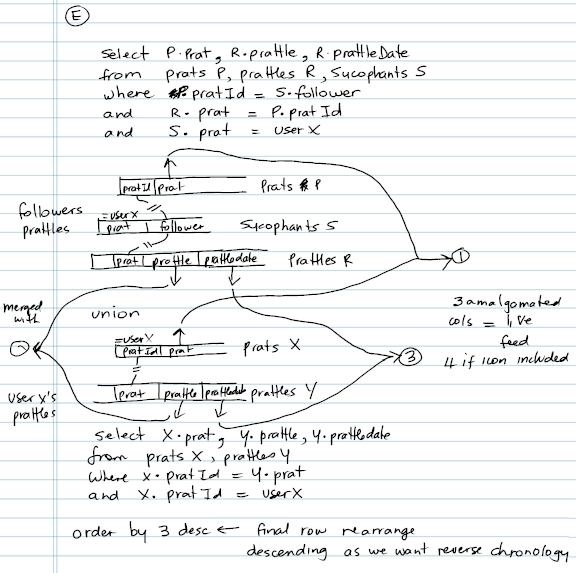 E
select P.Prat, R.prattle, R.prattleDate
from prats P, prattles R, Sycophants S
where P.pratId = S.follower
and R.prat = P.pratId
and S.prat = user X
pratId prat Prats P
followers prattles
=userX
prat follower Sycophants S
prat prottle prattledate Prattles R
1
merged with
union
3 amalgomated cols = live feed
4 if icon included
=userX
PratId prat prats X
2
3
user x's prattles
prat prattle prattledate prattles Y
select X.prat, Y.prattle, Y.prattledate
from prats X, prattles Y
where X.pratId = Y.prat
and X.pratId = userX
order by 3 desc ← final row rearrange
descending as we want reverse chronology